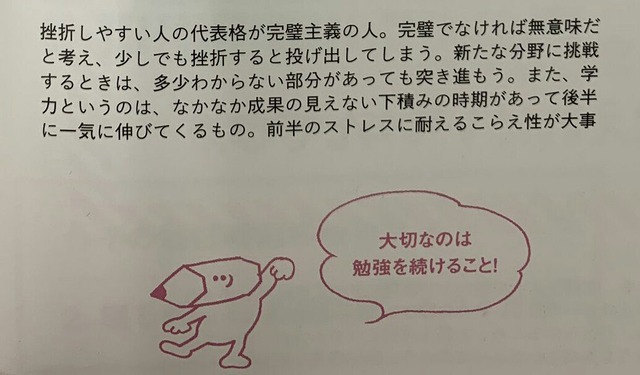 挫折しやすい人の代表格が完璧主義の人。完璧でなければ無意味だ
と考え、少しでも挫折すると投げ出してしまう。新たな分野に挑戦
するときは、多少わからない部分があっても突き進もう。また、学
力というのは、なかなか成果の見えない下積みの時期があって後半
に一気に伸びてくるもの。前半のストレスに耐えるこらえ性が大事
大切なのは
勉強を続けること!